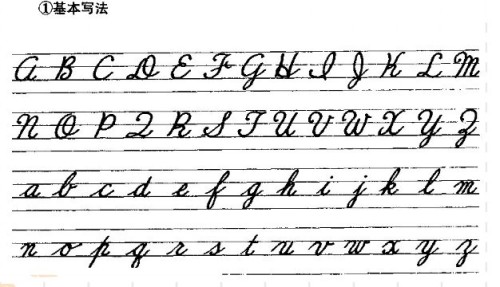 ①基本写法
A B C D E F G H I J K L M
N O P Q R S T U V W X Y Z
a b c d e f g h i j k l m
n o p q r s t u v w x y z